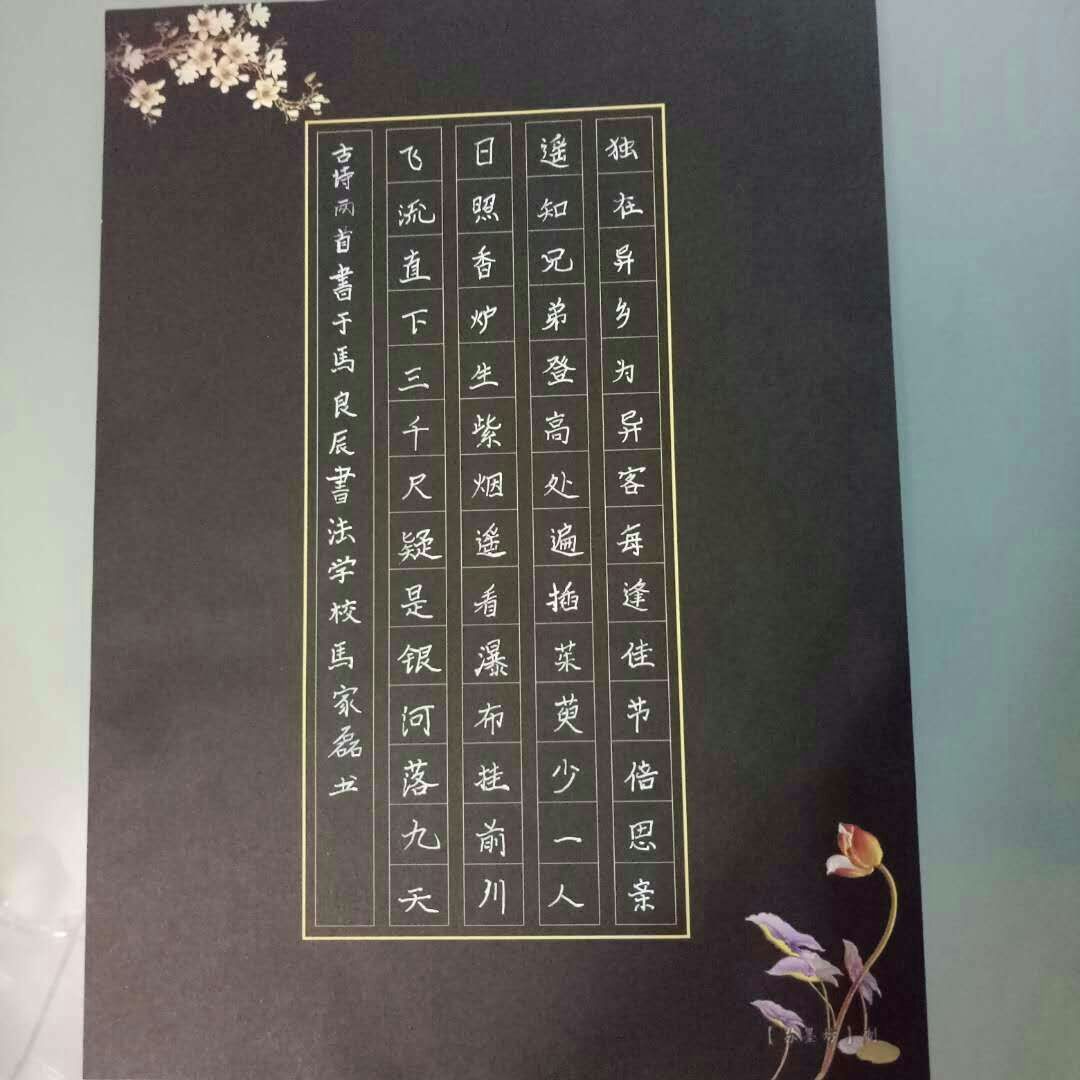 独在异乡为异客每逢佳节倍思亲
遥知兄弟登高处遍插茱萸少一人
日照香炉生紫烟遥看瀑布挂前川
飞流直下三千尺疑是银河落九天
古诗两首書于馬良辰書法学校馬家磊书